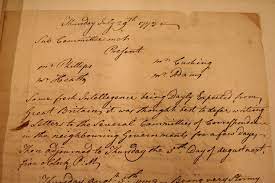 Thursday July 29th 1773
Sub Committee met
Present
mr Phillips mr Cushing
mr Heath mr Adams
Some fresh Intelligence being daily Expected from
Great Britain, it was thought best to defer writing
a Letter to the General Committees of Correspondence
in the neighbouring Governments for a few days,
then adjourned to Thursday the 5th Day of August next,
five oClock P.M.
Thursday August 5th being very Stormy